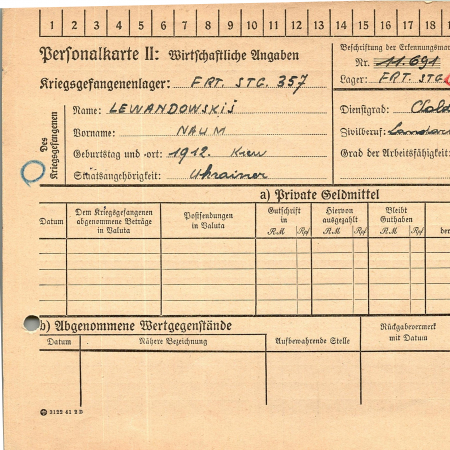 1 2 3 4 5 6 7 8 9 10 11 12 13 14 15 16 17 18
Personalkarte II: Wirtschaftliche Angaben
Kriegsgefangenenlager: FRT. STG. 357
Beschriftung der Erkennungsmar
Nr. 11.691
Lager: FRT. STG.
Des Kriegsgefangenen
Name: LEWANDOWSKIJ
Vorname: NAUM
Geburtstag und -ort: 1912. Kiew
Staatsangehörigkeit: Ukrainer
Dienstgrad: Sold
Zivilberuf:
Grad der Arbeitsfähigkeit:
a) Private Geldmittel
Datum
Dem Kriegsgefangenen abgenommene Beträge in Valuta
Postsendungen in Valuta
Gutschrift in
RM Rpf
Hiervon ausgezahlt
RM Rpf
Bleibt Guthaben
RM Rpf
b) Abgenommene Wertgegenstände
Datum
Nähere Bezeichnung
Aufbewahrende Stelle
Rückgabevermerk mit Datum
3122 41 2 D